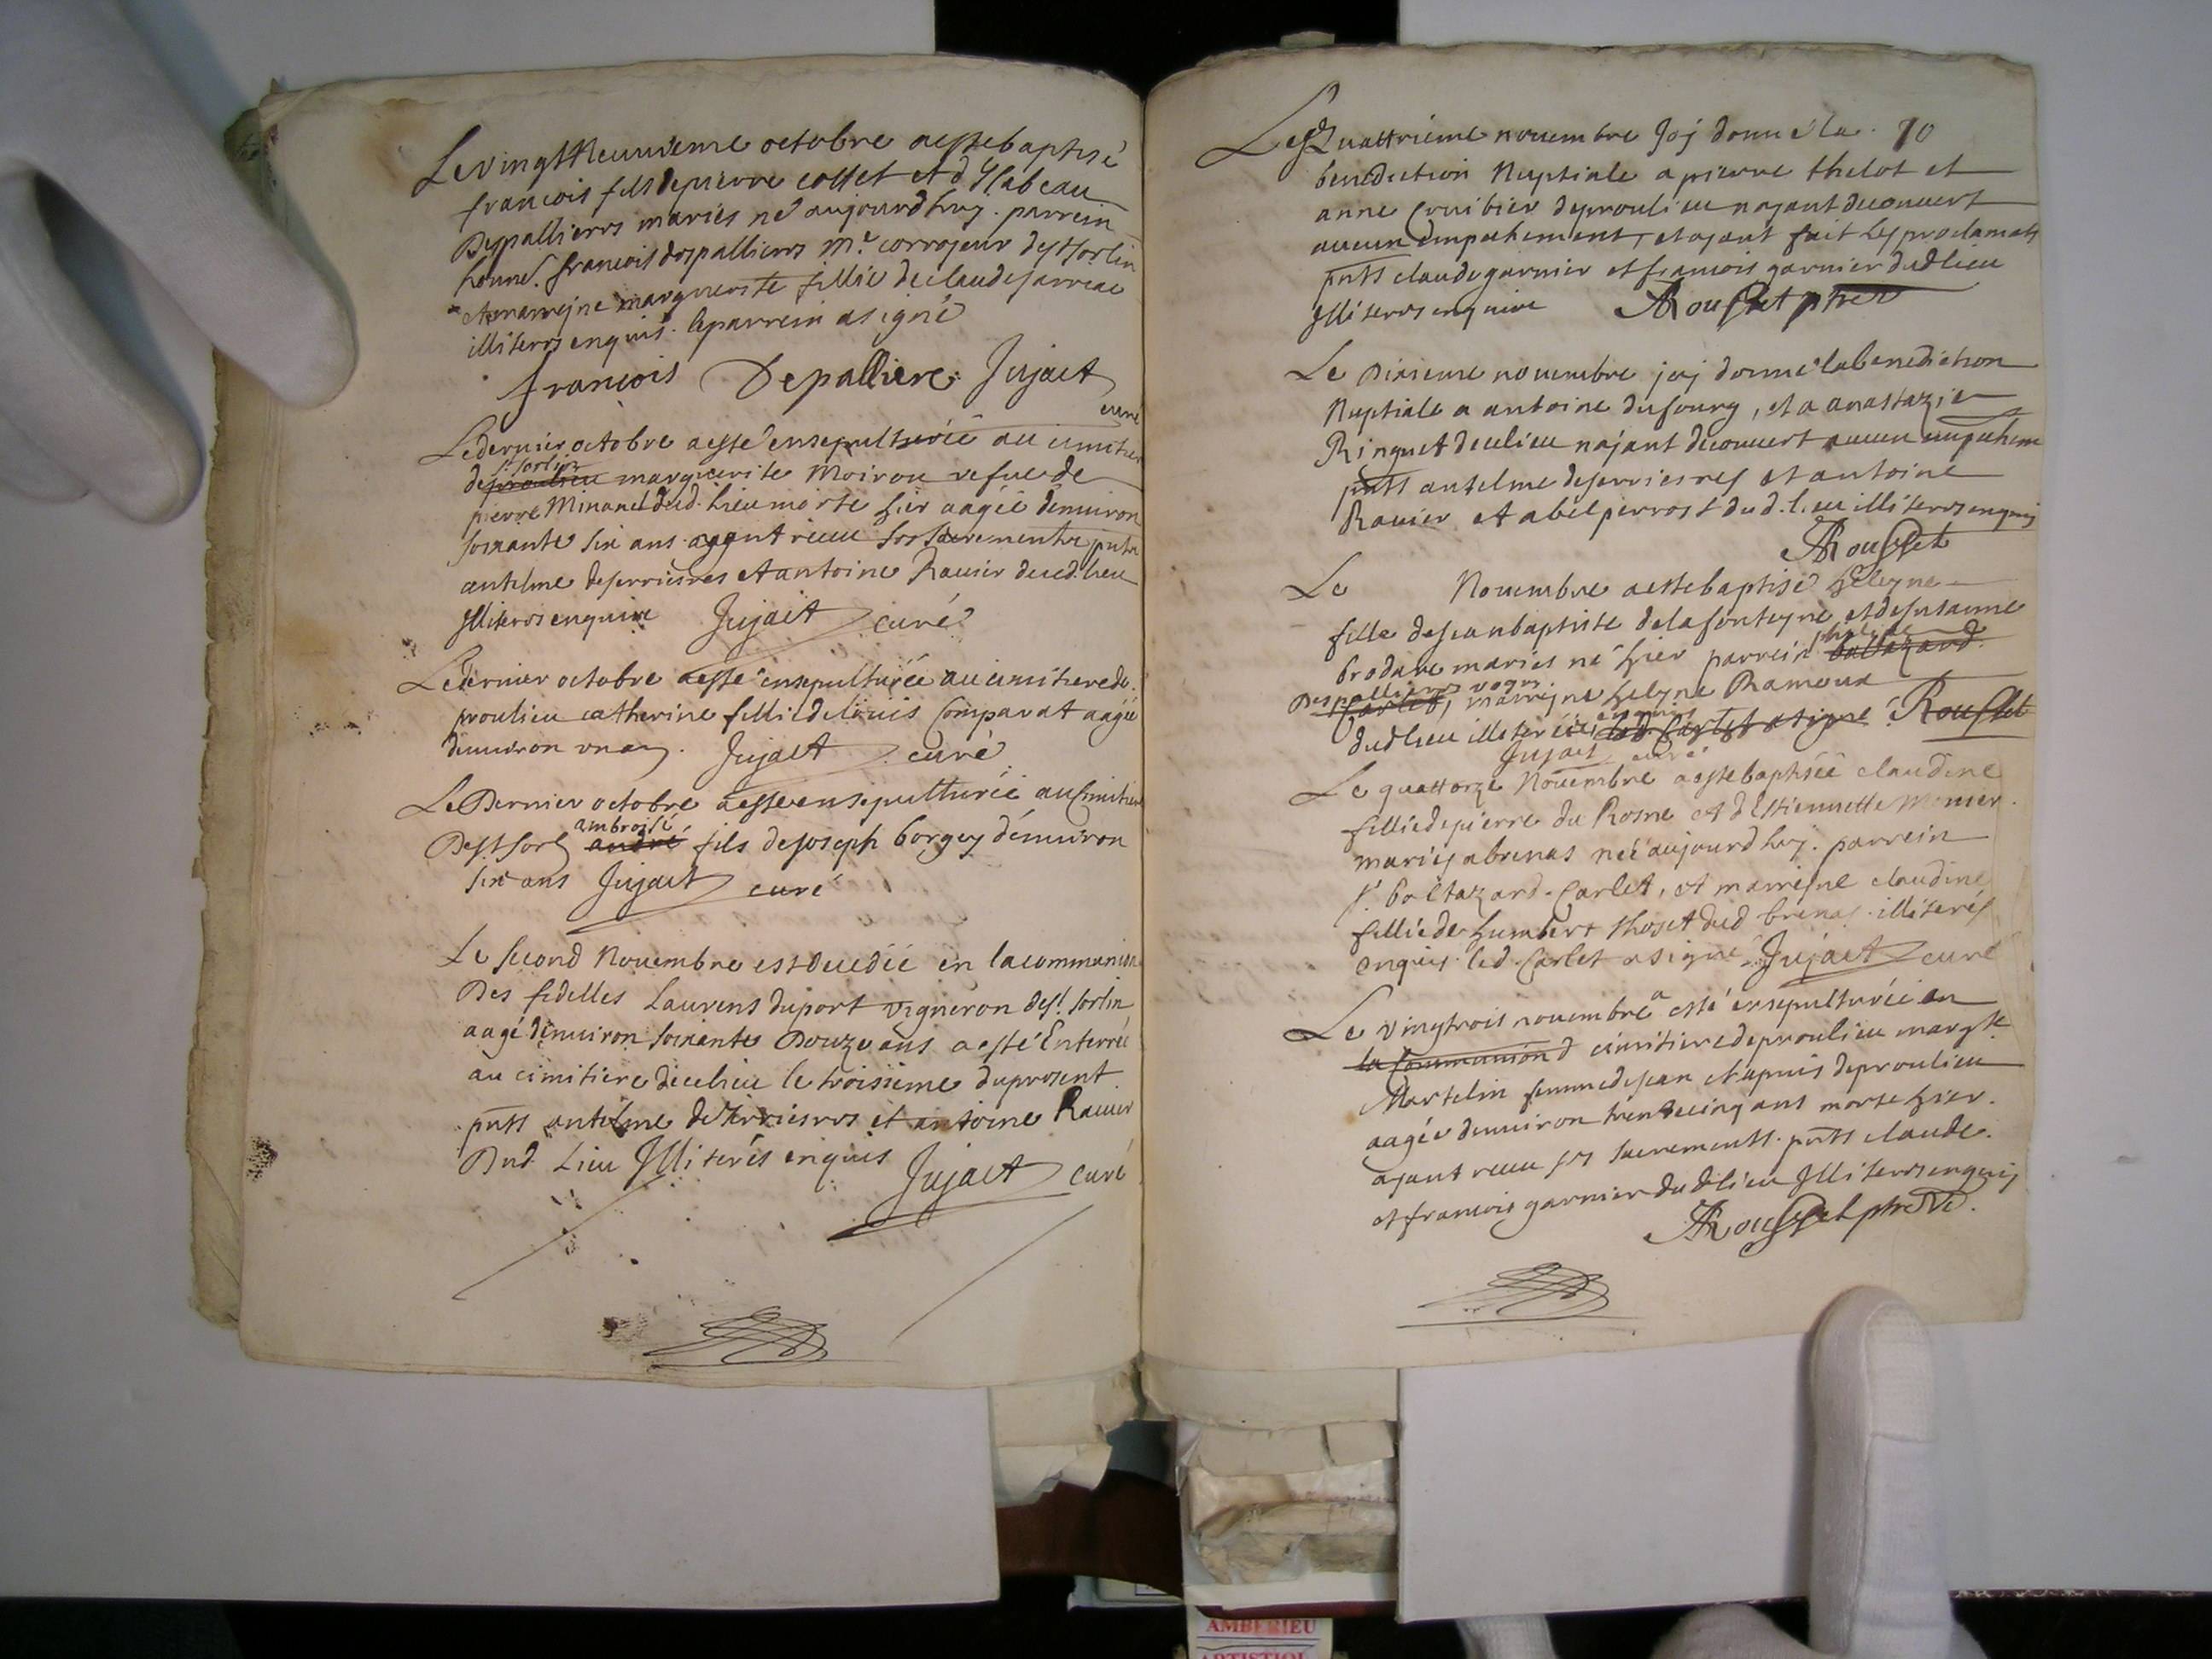 Le vingt Neuvieme octobre a esté baptisé
francois fils de pierre collet et d'ysabeau
Despallieres mariés né aujourd huy. parrein
honne. francois despallieres Me. corroyeur de St Sorlin
et marrejne marguerite fillie de claude
illiteres enquis. le parrein a signé
francois Depalliere Jujact
curé
Le dernier octobre a esté ensepulturée au cimitier
de St. Sorlin proulieu marguerite Moiron vefue de
pierre Minand dud. lieu morte hier aagée d'enuiron
soixante six ans ayant receu ses sacrements pnts
antelme deserrieres et antoine Rauier dud. lieu
Illiteres enquis Jujact curé
Le dernier octobre a esté ensepulturée au cimitiere de
proulieu catherine fillie de louis Comparat aagée
d'enuiron vn an. Jujact curé
Le Dernier octobre a esté ensepulturée au Cimitier
De St Sorl ambroise andré fils de Joseph borgey d'enuiron
six ans Jujact curé
Le second Nouembre est decedé en la communion
Des fidelles Laurens duport vigneron de St. Sorlin
aagé d'enuiron soixante Douze ans a esté Enterré
au cimitiere dicelieu le troisieme du present
pnts antelme deserrieres et antoine Rauier
Dud. Lieu Illiterés enquis
Jujact curé
Le Quattrieme nouembre Jaj donné la 70
benediction Nuptiale a pierre thelot et
anne Cruibier de proulieu n'ajant decouuert
aucun empechement, et ajant fait les proclamats
pnts claude garnier et francois garnier dud lieu
Illiteres enquis ARousset ptre
Le Dixieme nouembre jaj donné la benediction
Nuptiale a antoine dufourg, et a anastazie
Ringuet de ce lieu n'ajant decouuert aucun empechem
pnts antelme deserrieres et antoine
Rauier et abel perrost dud. lieu illiteres enquis
ARousset
Le Nouembre a esté baptisé heleyne
fille de Jean baptiste delafonteyne et de susanne
brodare mariés né hier parrein baltazard
Despallieres Carlet, marrejne heleyne Ramoux
dud lieu illiterés enquis led. Carlet a signé Rousset
Jujact curé
Le quattorze Nouembre a esté baptisée claudine
fillie de pierre du Rosne et d'Estiennette Monier
mariés a brenas née aujourd huy. parrein
Sr. baltazard. Carlet, et marrejne claudine
fillie de humbert thoset dud brenas. illiterés
enquis. led. Carlet a signé. Jujact curé
Le vingtrois nouembre a esté ensepulturée au
la Communion d cimitiere de proulieu margte.
Martelin femme de Jean deproulieu
aagée d'enuiron trente cinq ans morte hier.
ajant receu ses sacrements. pnts claude.
et francois garnier dudi lieu Illiteres enquis
ARousset ptre
AMBERIEU